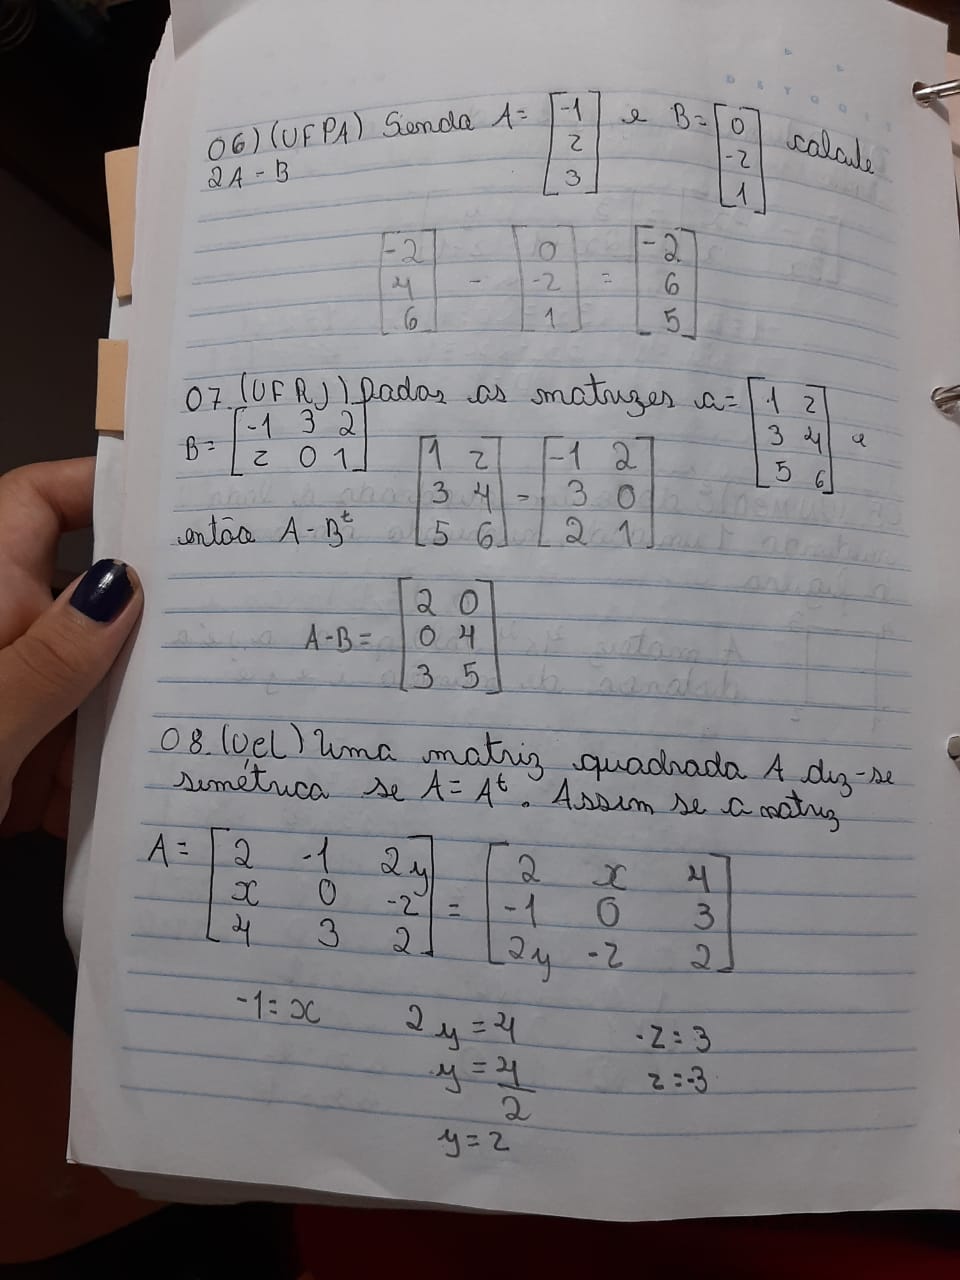 06) (UFPA) Sendo A= [-1 2 3] e B= [0 -2 1] calcule
2A - B
[-2 4 6] - [0 -2 1] = [-2 6 5]
07. (UFRJ) Dadas as matrizes a= [1 2
3 4
5 6] e
B= [-1 3 2
2 0 1]
então A - Bᵗ [1 2
3 4
5 6] - [-1 2
3 0
2 1]
A-B= [2 0
0 4
3 5]
08. (Uel) Uma matriz quadrada A diz-se
simétrica se A = Aᵗ. Assim se a matriz
A= [2 -1 2y
x 0 -z
4 3 2] = [2 x 4
-1 0 3
2y -z 2]
-1 = x 2y = 4 -z = 3
y = 4/2 z = -3
y = 2